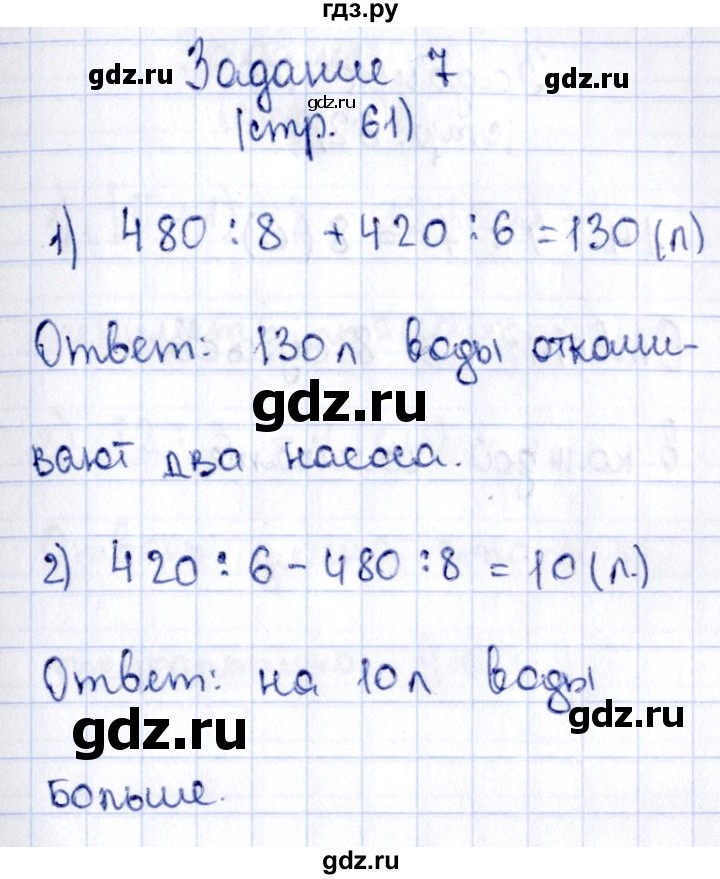 гдз.ру
Задание 7
gdz.ru
gdz.ru
gdz.ru
(стр. 61)
1) 480 : 8 + 420 : 6 = 130 (л)
Ответ: 130 л воды откачи-
gdz.ru
вают два насоса.
2) 420 : 6 - 480 : 8 = 10 (л.)
Ответ: на 10 л воды
gdz.ru
gdz.ru
больше.
gdz.ru